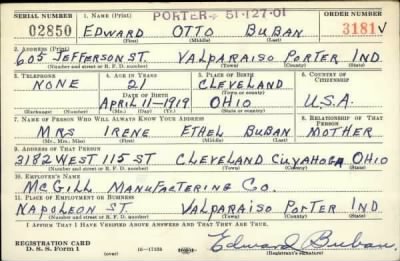 SERIAL NUMBER 1. NAME (Print) PORTER - 51-127-01 ORDER NUMBER
02850 EDWARD OTTO BUBAN 3181 √
(First) (Middle) (Last)
2. ADDRESS (Print)
605 JEFFERSON ST. VALPARAISO PORTER IND.
(Number and street or R. F. D. number) (Town) (County) (State)
3. TELEPHONE 4. AGE IN YEARS 5. PLACE OF BIRTH 6. COUNTRY OF CITIZENSHIP
NONE 21 CLEVELAND
DATE OF BIRTH (Town or county)
APRIL-11-1919 OHIO U.S.A.
(Exchange) (Number) (Mo.) (Day) (Yr.) (State or country)
7. NAME OF PERSON WHO WILL ALWAYS KNOW YOUR ADDRESS 8. RELATIONSHIP OF THAT PERSON
MRS IRENE ETHEL BUBAN MOTHER
(Mr., Mrs., Miss) (First) (Middle) (Last)
9. ADDRESS OF THAT PERSON
3182 WEST 115 ST CLEVELAND CUYAHOGA OHIO
(Number and street or R. F. D. number) (Town) (County) (State)
10. EMPLOYER'S NAME
MCGILL MANUFACTERING CO.
11. PLACE OF EMPLOYMENT OR BUSINESS
NAPOLEON ST VALPARAISO PORTER IND
(Number and street or R. F. D. number) (Town) (County) (State)
I AFFIRM THAT I HAVE VERIFIED ABOVE ANSWERS AND THAT THEY ARE TRUE.
REGISTRATION CARD
D. S. S. Form 1 (over) 16-17105 Edward Buban
(Registrant's signature)